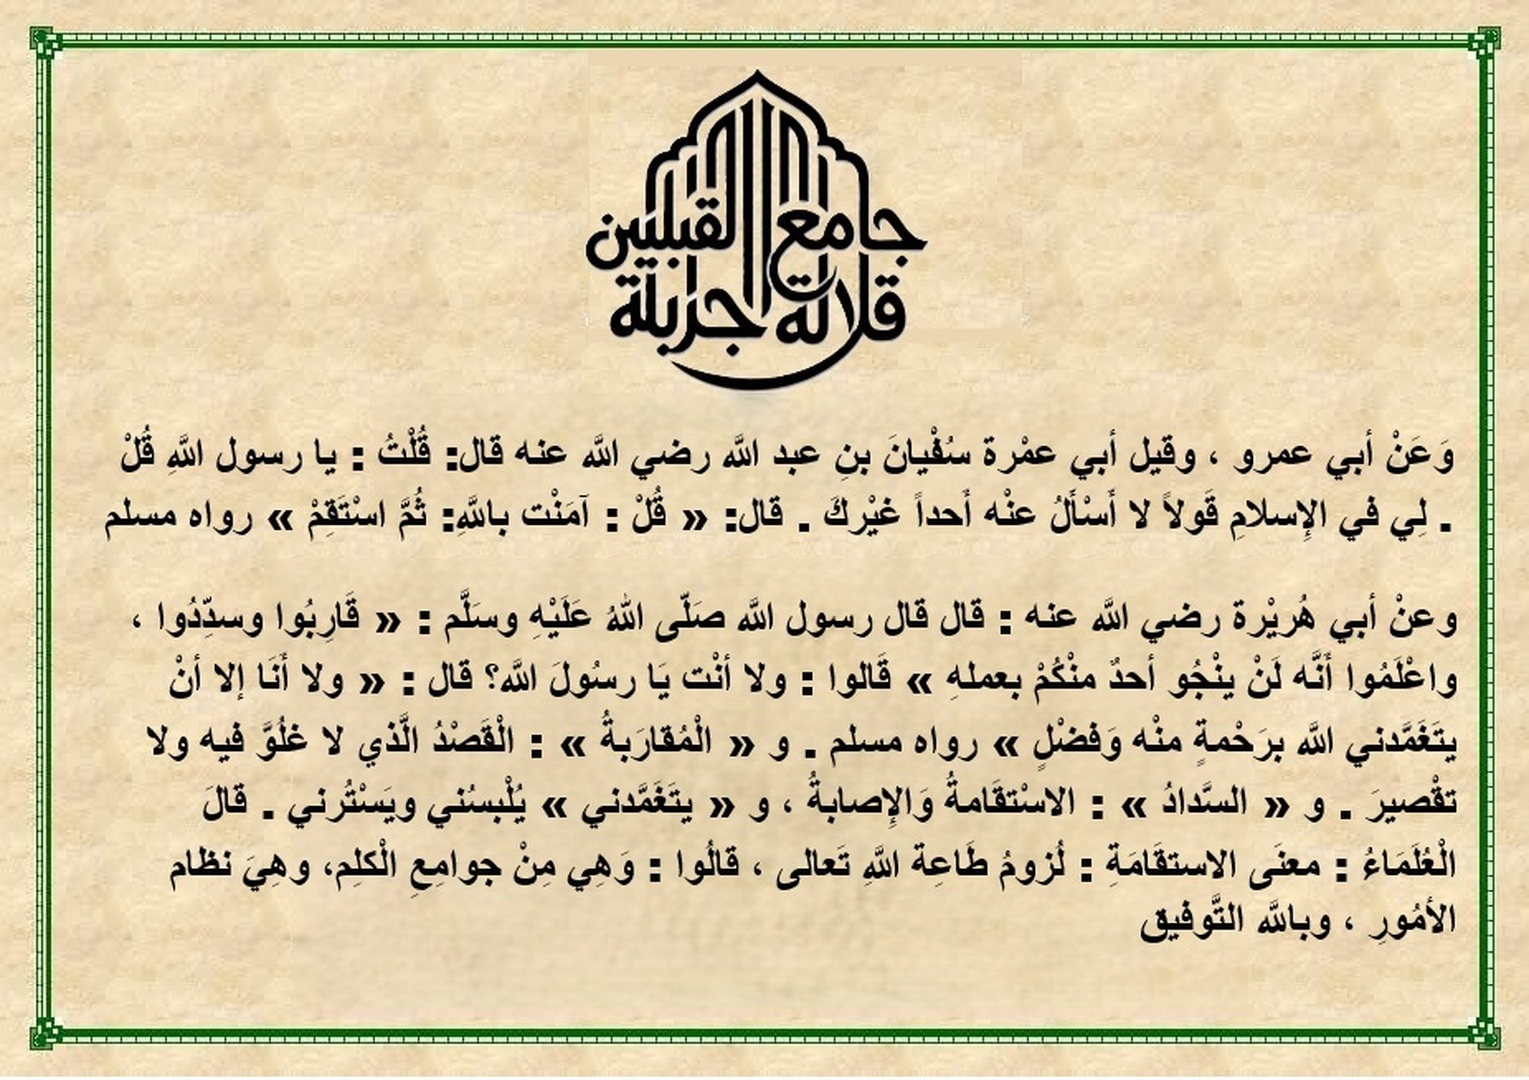 جامع القبلتين
قلالة جربة
وَعَنْ أبي عمرو ، وقيل أبي عمْرة سُفْيانَ بنِ عبد اللَّه رضي اللَّه عنه قال: قُلْتُ : يا رسول اللَّهِ قُلْ
. لِي في الإِسلامِ قَولاً لا أَسْأَلُ عنْه أَحداً غيْركَ . قال: « قُلْ : آمَنْت باللَّهِ: ثُمَّ اسْتَقِمْ » رواه مسلم
وعنْ أبي هُريْرة رضي اللَّه عنه : قال قال رسول اللَّه صَلّى اللهُ عَلَيْهِ وسَلَّم : « قَارِبُوا وسدِّدُوا ،
واعْلَمُوا أَنَّه لَنْ ينْجُو أحدٌ منْكُمْ بعملهِ » قَالوا : ولا أنْت يَا رسُولَ اللَّه؟ قال : « ولا أَنَا إلا أنْ
يتَغَمَّدني اللَّه برَحْمةٍ منْه وَفضْلٍ » رواه مسلم . و « الْمُقارَبةُ » : الْقَصْدُ الَّذي لا غلُوَّ فيه ولا
تقْصيرَ . و « السَّدادُ » : الاسْتقَامةُ وَالإِصابةُ ، و « يتَغَمَّدني » يُلْبسُني ويَسْتُرني . قالَ
الْعُلَمَاءُ : معنَى الاستقَامَةِ : لُزومُ طَاعِة اللَّهِ تَعالى ، قالُوا : وَهِي مِنْ جوامِعِ الْكلِم، وهِيَ نظام
الأمُورِ ، وباللَّه التَّوفيق